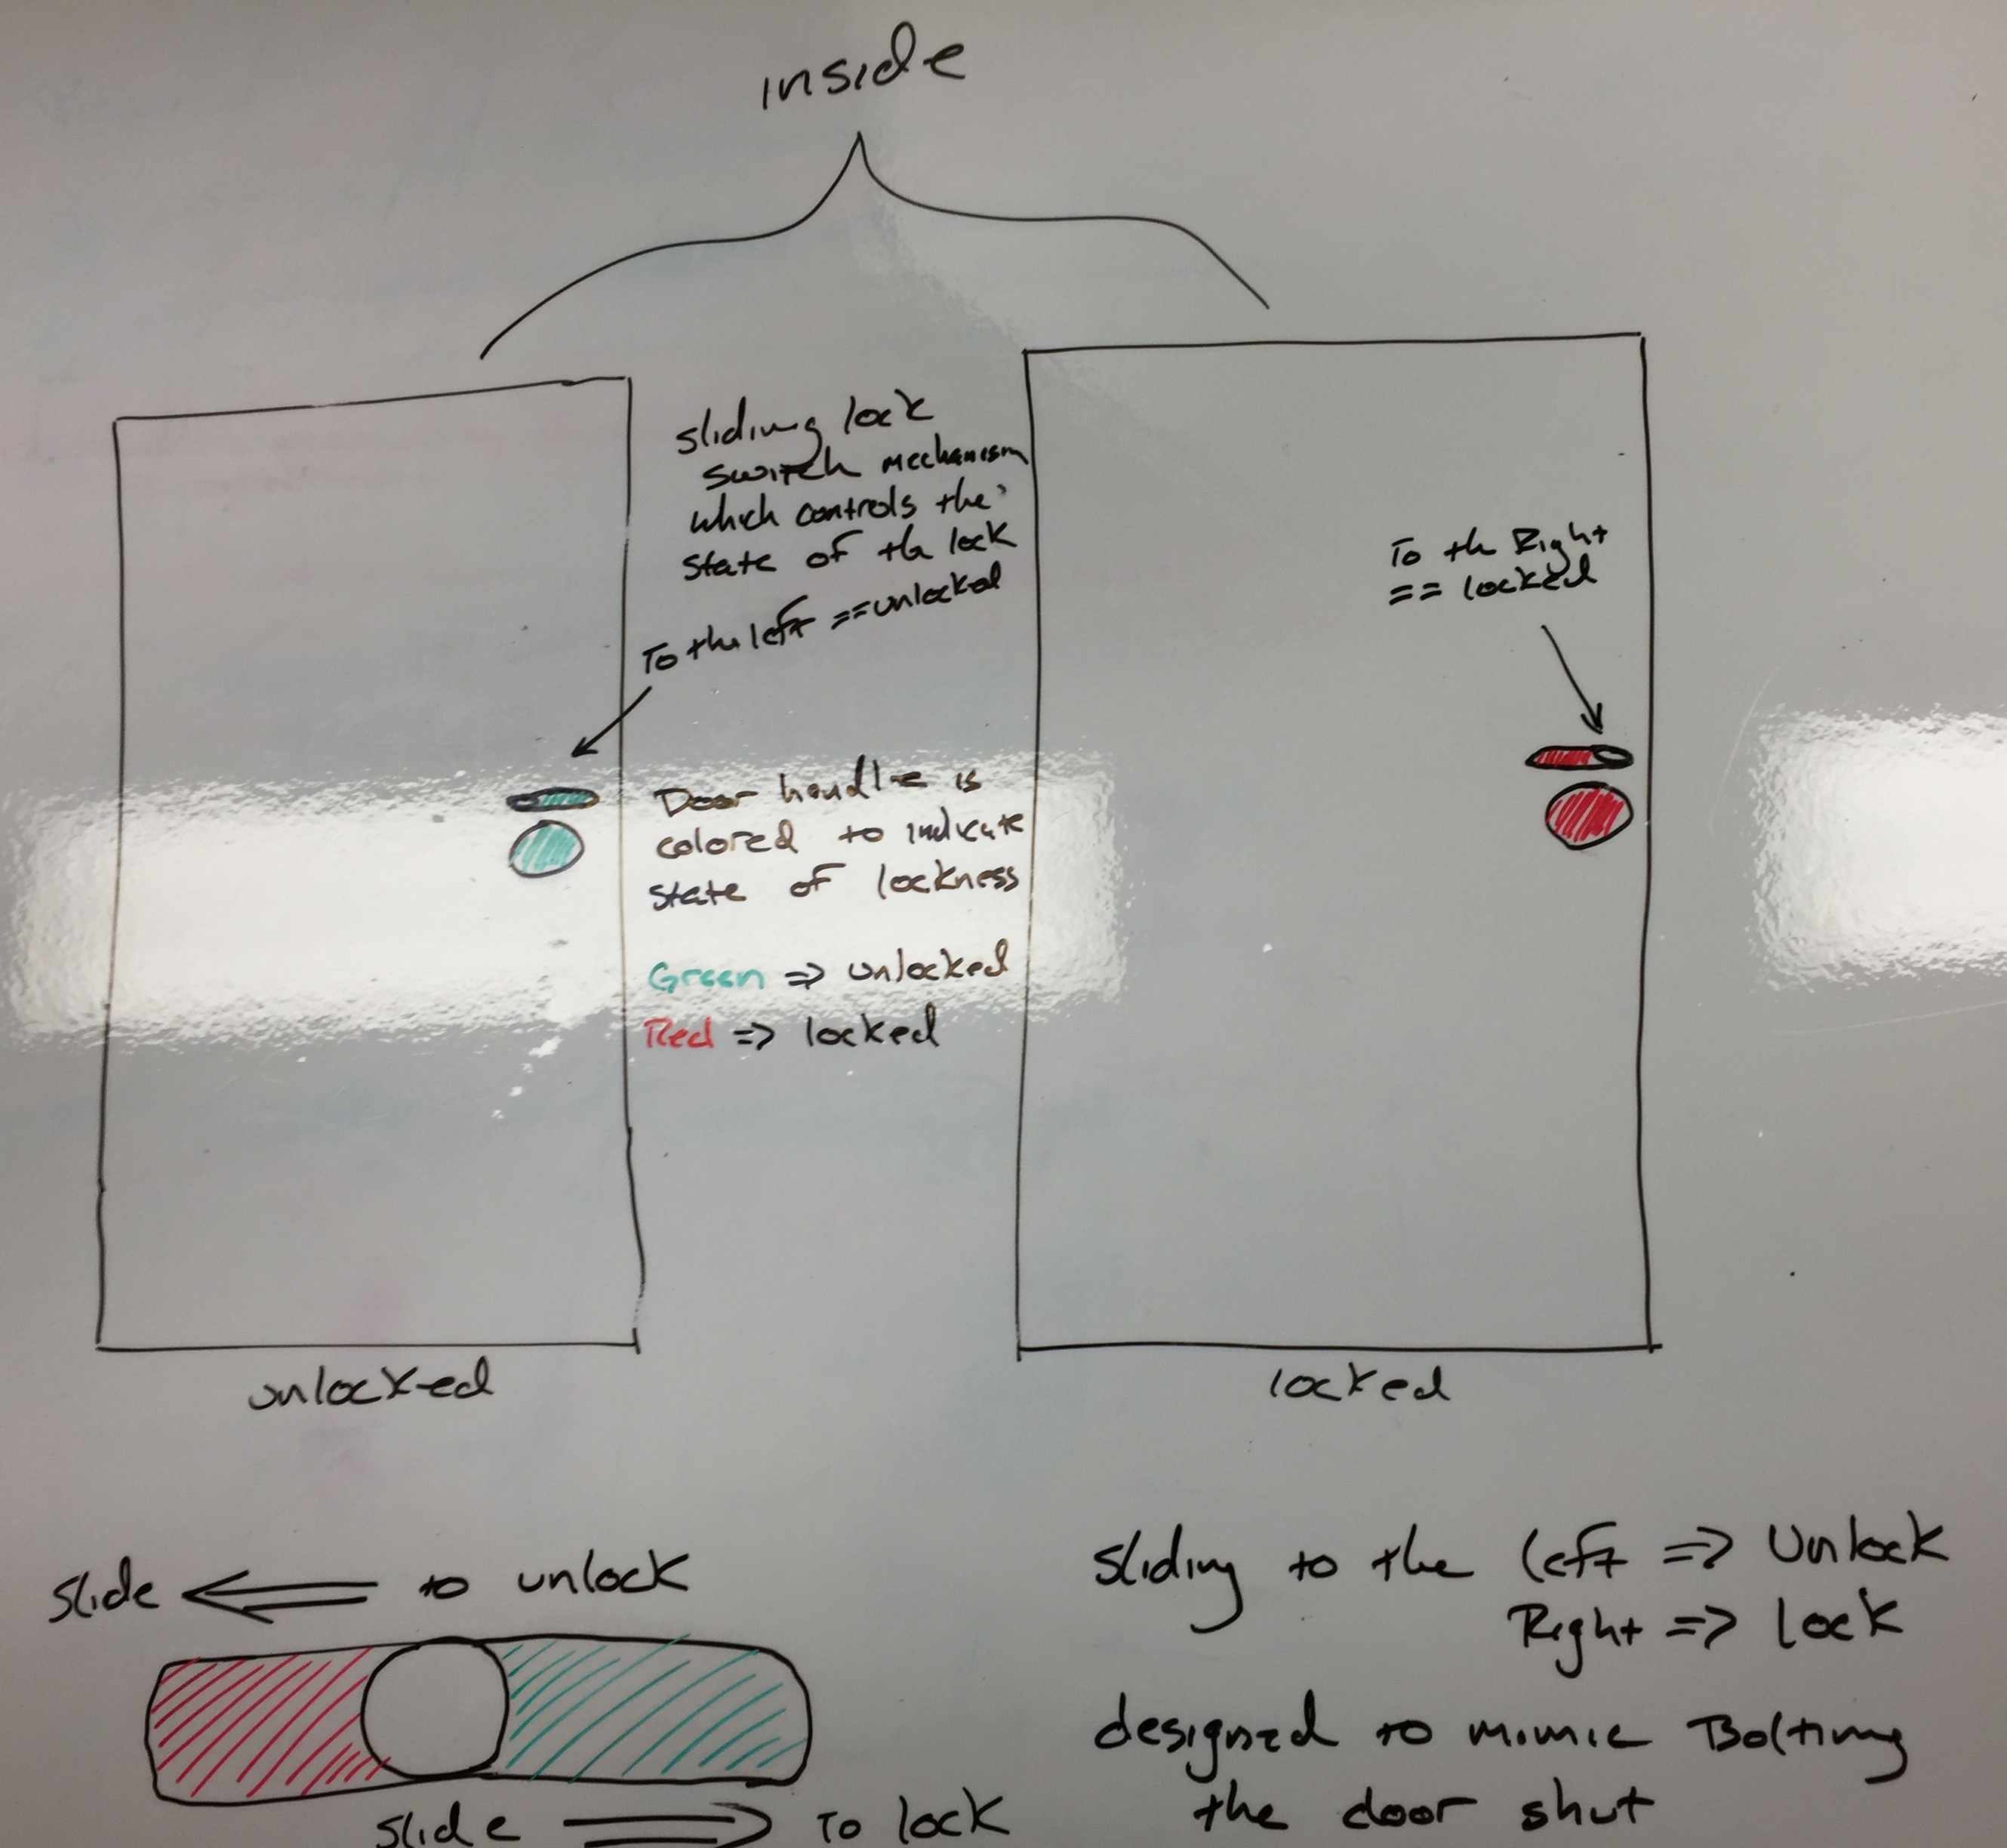 inside
sliding lock
switch mechanism
which controls the
state of th lock
To the left == unlocked
To th Right
== locked
Door handle is
colored to indicate
state of lockness
Green => unlocked
Red => locked
unlocked
locked
slide <= to unlock
slide => To lock
Sliding to the left => Unlock
Right => lock
designed to mimic Bolting
the door shut